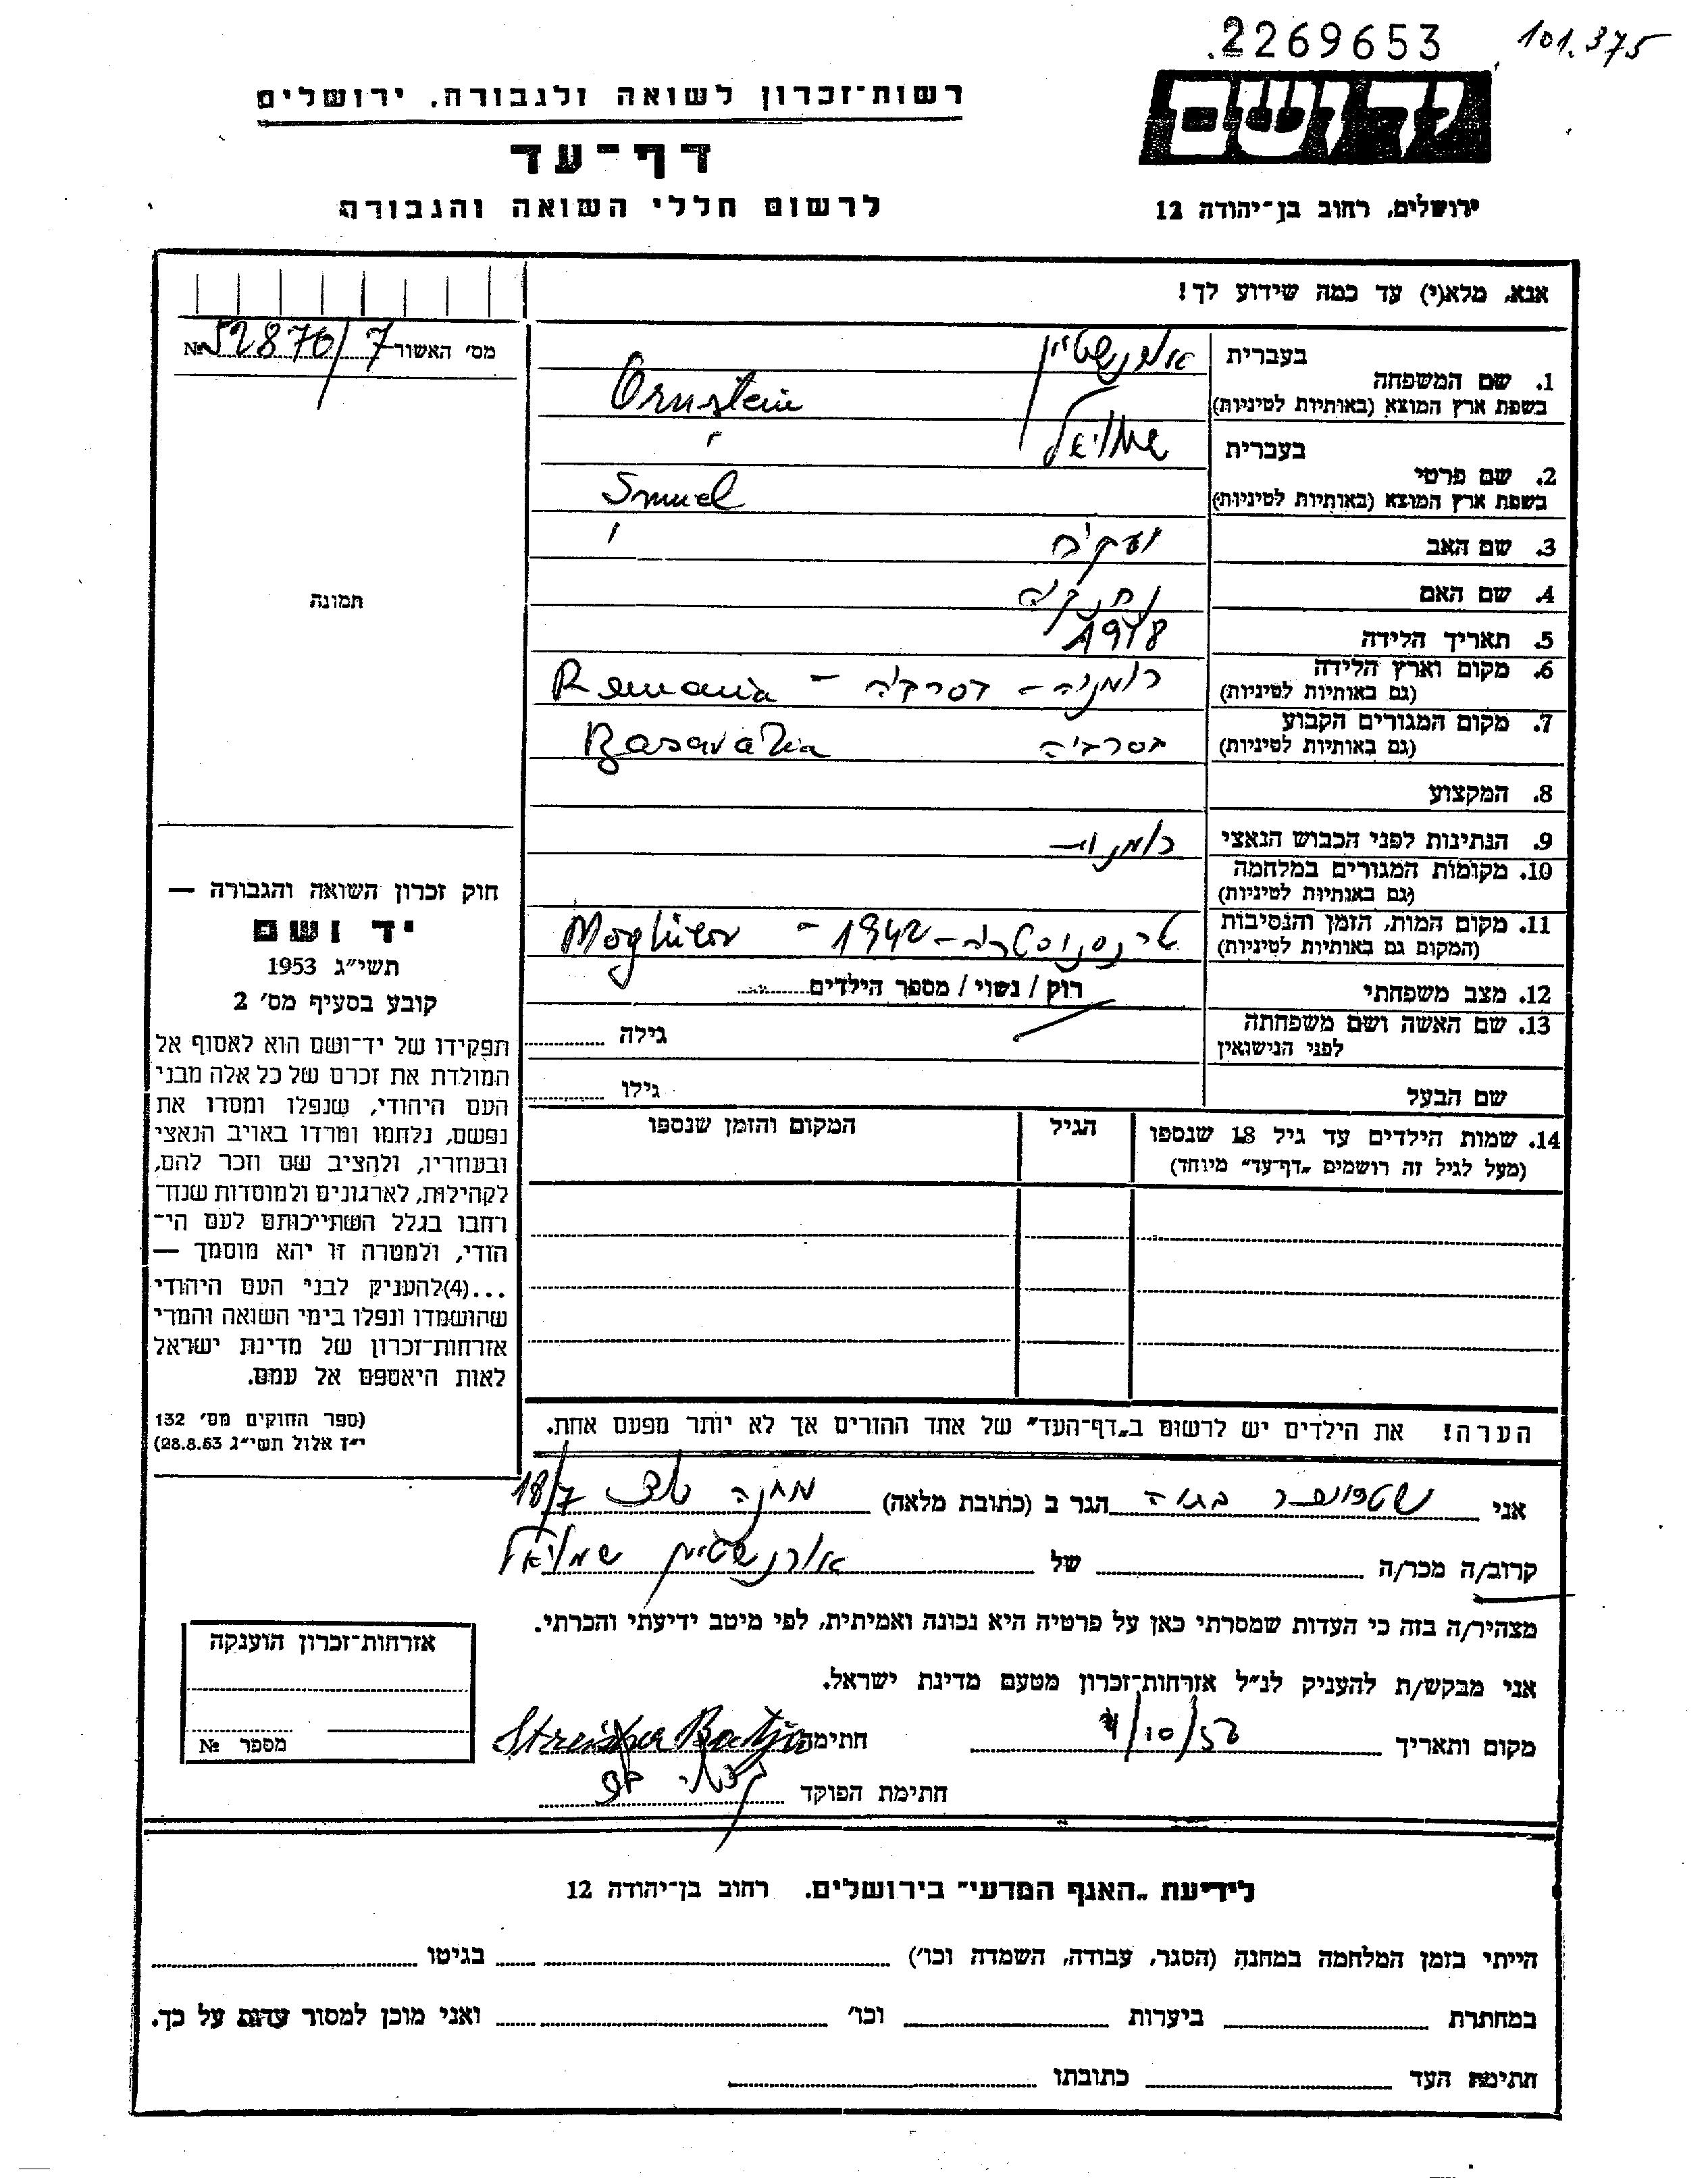 2269653 101.375
יד ושם
רשות־זכרון לשואה ולגבורה, ירושלים
דף־עד
לרשום חללי השואה והגבורה
ירושלים, רחוב בן־יהודה 12
אנא, מלא(י) עד כמה שידוע לך!
מס׳ האשור 52876/7 №
1. שם המשפחה
בעברית אורנשטיין
בשפת ארץ המוצא (באותיות לטיניות) Ornstein
2. שם פרטי
בעברית שמואל
בשפת ארץ המוצא (באותיות לטיניות) Smuel
3. שם האב יעקב
4. שם האם
5. תאריך הלידה 1918
6. מקום וארץ הלידה
(גם באותיות לטיניות) רומניה - בסרביה - Romania
7. מקום המגורים הקבוע
(גם באותיות לטיניות) בסרביה Basarabia
8. המקצוע
9. הנתינות לפני הכבוש הנאצי רומנית
10. מקומות המגורים במלחמה
(גם באותיות לטיניות)
11. מקום המות, הזמן והנסיבות
(המקום גם באותיות לטיניות) טרנסניסטריה - 1942 - Moghilev
12. מצב משפחתי רוק / נשוי / מספר הילדים
13. שם האשה ושם משפחתה
לפני הנישואין גילה
שם הבעל גילו
14. שמות הילדים עד גיל 18 שנספו
(מעל לגיל זה רושמים „דף־עד״ מיוחד)
הגיל
המקום והזמן שנספו
תמונה
חוק זכרון השואה והגבורה —
יד ושם
תשי״ג 1953
קובע בסעיף מס׳ 2
תפקידו של יד־ושם הוא לאסוף אל
המולדת את זכרם של כל אלה מבני
העם היהודי, שנפלו ומסרו את
נפשם, נלחמו ומרדו באויב הנאצי
ובעוזריו, ולהציב שם וזכר להם,
לקהילות, לארגונים ולמוסדות שנח־
רחבו בגלל השתייכותם לעם הי־
הודי, ולמטרה זו יהא מוסמך —
...(4)להעניק לבני העם היהודי
שהושמדו ונפלו בימי השואה והמרי
אזרחות־זכרון של מדינת ישראל
לאות היאספם אל עמם.
(ספר החוקים מס׳ 132
י״ז אלול תשי״ג 28.8.53)
הערה! את הילדים יש לרשום ב„דף־העד״ של אחד ההורים אך לא יותר מפעם אחת.
אני בתיה הגר ב (כתובת מלאה) מחנה 18/7
קרוב/ה מכר/ה של אורנשטיין שמואל
מצהיר/ה בזה כי העדות שמסרתי כאן על פרטיה היא נכונה ואמיתית, לפי מיטב ידיעתי והכרתי.
אני מבקש/ת להעניק לנ״ל אזרחות־זכרון מטעם מדינת ישראל.
מקום ותאריך חתימה
חתימת הפוקד
אזרחות־זכרון הוענקה
מספר №
לידיעת „האגף המדעי״ בירושלים. רחוב בן־יהודה 12
הייתי בזמן המלחמה במחנה (הסגר, עבודה, השמדה וכו׳) בגיטו
במחתרת ביערות וכו׳ ואני מוכן למסור עדות על כך.
חתימת העד כתובתו